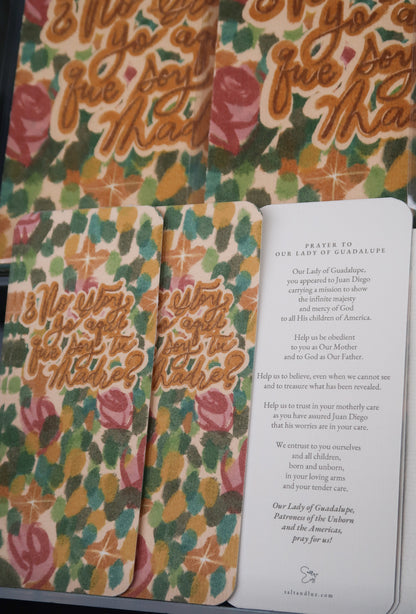 ¿No
yo
que soy
Mad
yo
que soy
Mad
¿No estoy
yo aquí
que soy tu
Madre?
estoy
aquí
soy tu
Madre?
PRAYER TO
OUR LADY OF GUADALUPE
Our Lady of Guadalupe,
you appeared to Juan Diego
carrying a mission to show
the infinite majesty
and mercy of God
to all His children of America.
Help us be obedient
to you as Our Mother
and to God as Our Father.
Help us to believe, even when we cannot see
and to treasure what has been revealed.
Help us to trust in your motherly care
as you have assured Juan Diego
that his worries are in your care.
We entrust to you ourselves
and all children,
born and unborn,
in your loving arms
and your tender care.
Our Lady of Guadalupe,
Patroness of the Unborn
and the Americas,
pray for us!
saltandluz.com